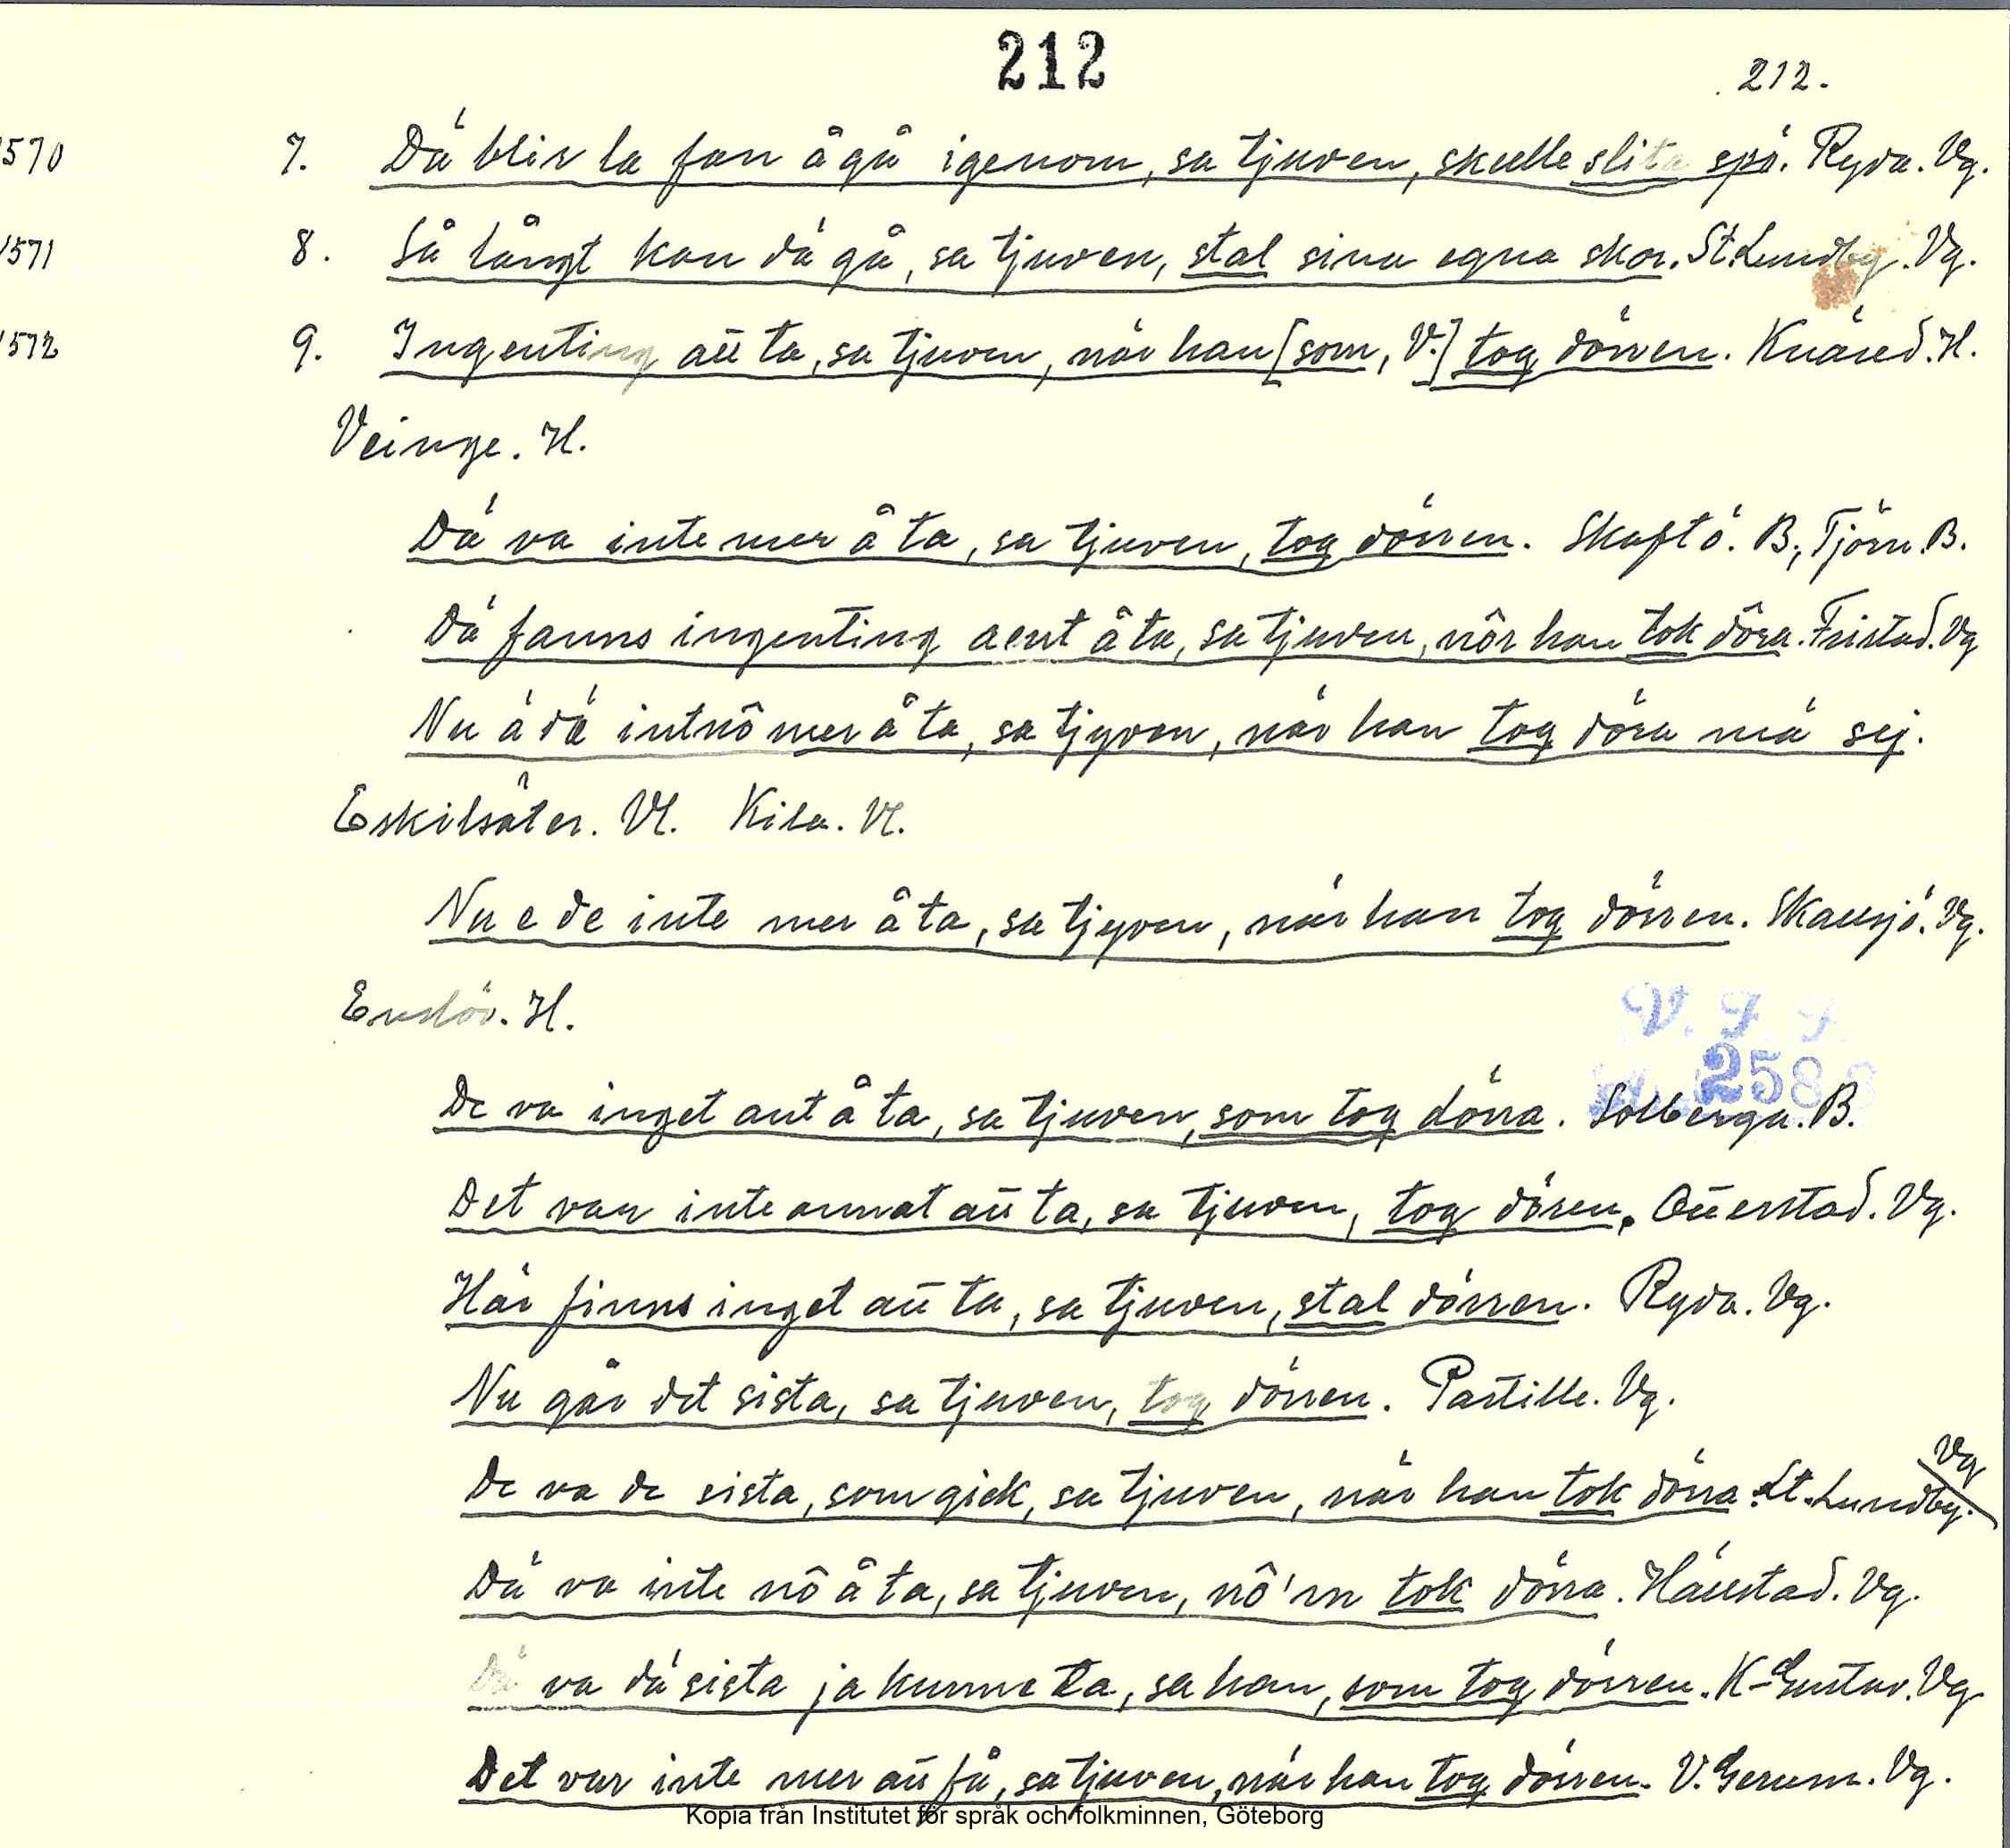 212
212.
1570 7. Dä blir la fan å gå igenom, sa tjuven, skulle slita spö. Ryda. Vg.
1571 8. Så långt kan dä gå, sa tjuven, stal sina egna skor. St. Lundby. Vg.
1572 9. Ingenting att ta, sa tjuven, när han [som, V.] tog dörren. Knäred. H.
Veinge. H.
Dä va inte mer å ta, sa tjuven, tog dörren. Skaftö. B., Tjörn. B.
Dä fanns ingenting aent å ta, sa tjuven, nôr han tok dôra. Fristad. Vg
Nu ä dä intnô mer å ta, sa tjyven, när han tog döra mä sej.
Eskilsäter. Vl. Kila. Vl.
Nu e de inte mer å ta, sa tjyven, när han tog dörren. Skallsjö. Vg.
Enslöv. H.
V. F. F.
258
De va inget ant å ta, sa tjuven, som tog dörra. Solberga. B.
Det var inte annat att ta, sa tjuven, tog dören. Otterstad. Vg.
Här finns inget att ta, sa tjuven, stal dörren. Ryda. Vg.
Nu går det sista, sa tjuven, tog dörren. Partille. Vg.
De va de sista, som gick, sa tjuven, när han tok dörra. St. Lundby. Vg
Dä va inte nô å ta, sa tjuven, nô'rn tok dörra. Hällstad. Vg.
Dä va dä sista ja kunne ta, sa han, som tog dörren. K-Gustav. Vg
Det var inte mer att få, sa tjuven, när han tog dörren. V. Gerum. Vg.
Kopia från Institutet för språk och folkminnen, Göteborg